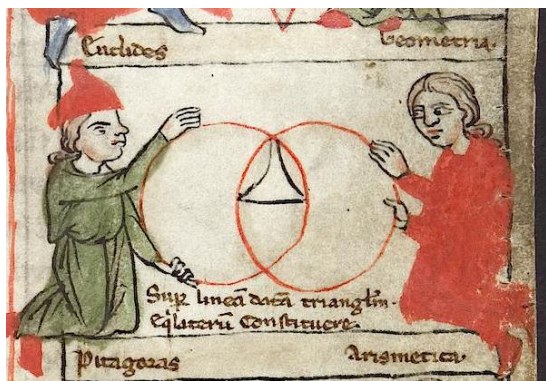 Euclides Geometria.
Sup lineā datā trianglm̄.
Eq̄laterū Constituere.
Pitagoras Arismetica.